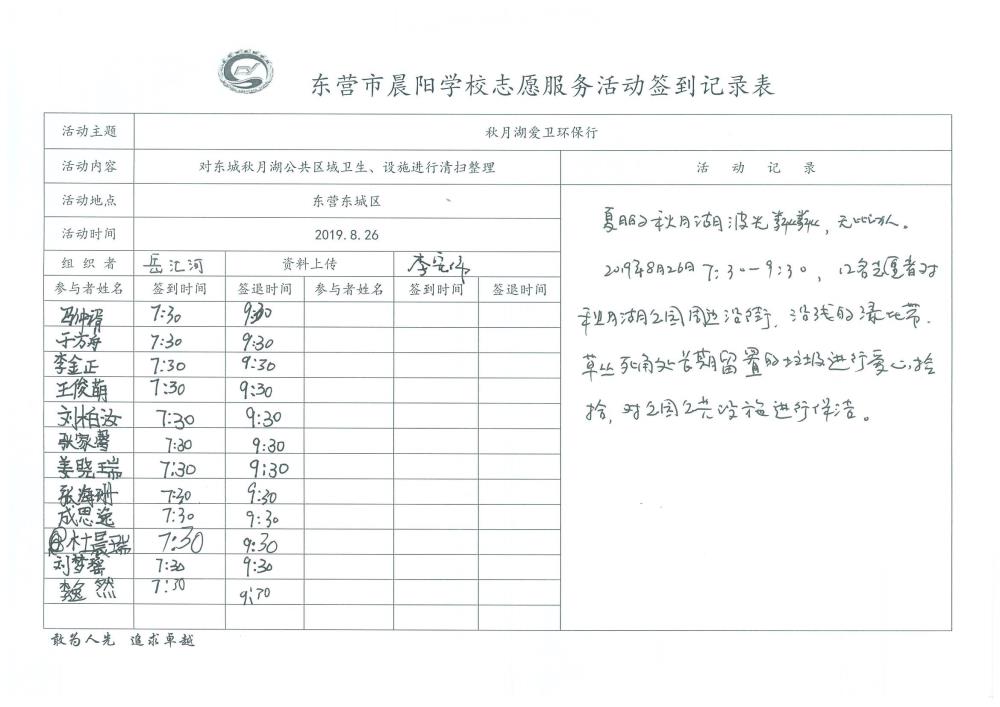 东营市晨阳学校志愿服务活动签到记录表
活动主题 秋月湖爱卫环保行
活动内容 对东城秋月湖公共区域卫生、设施进行清扫整理 活动记录
活动地点 东营东城区
活动时间 2019.8.26
组织者 岳汇河 资料上传 李宪伟
参与者姓名 签到时间 签退时间 参与者姓名 签到时间 签退时间
7:30 9:30
于方舟 7:30 9:30
李金正 7:30 9:30
王俊萌 7:30 9:30
刘柏汝 7:30 9:30
张家馨 7:30 9:30
姜晓瑞 7:30 9:30
张海珊 7:30 9:30
成思逸 7:30 9:30
杜晨瑞 7:30 9:30
刘梦馨 7:30 9:30
魏然 7:30 9:30
夏日的秋月湖波光粼粼,无比动人。
2019年8月26日7:30-9:30,12名志愿者对
秋月湖公园周边沿街、沿线的绿化带、
草丛死角处长期留置的垃圾进行爱心捡
拾,对公园公共设施进行保洁。
敢为人先 追求卓越